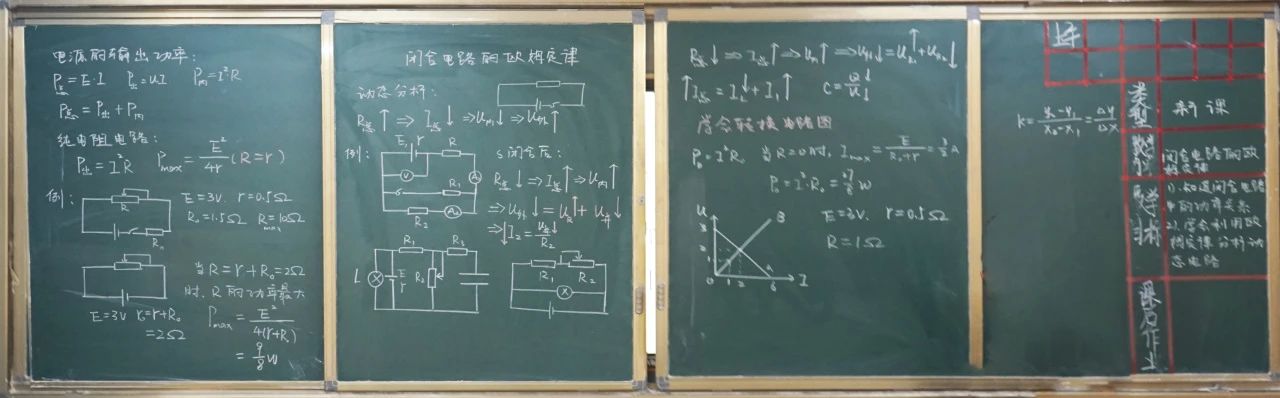 电源的输出功率：
P总=E·I P出=UI P内=I²R
P总=P出+P内
纯电阻电路：
P出=I²R Pmax=E²/4r(R=r)
例：
R
R₀
E=3V r=0.5Ω
R₀=1.5Ω Rmax=10Ω
当R=r+R₀=2Ω
时，R的功率最大
E=3V r₀=r+R₀
=2Ω
Pmax=E²/4(r+R₀)
=9/8W
闭合电路的欧姆定律
动态分析：
R总↑⇒I总↓⇒U内↓⇒U外↑
例：
E,r R
V
A
R₁
R₂
A₂
S闭合后：
R总↓⇒I总↑⇒U内↑
⇒U外↓=U R↑+U并↓
⇒↓I₂=U并↓/R₂
L
E
r
R₁
R₃
R₂
R₁
R₂
R总↓⇒I总↑⇒U内↑⇒U外↓=U R₁↑+U R₂↓
↑I总=I₂↓+I₁↑ C=Q/U↓
学会转换电路图
P₀=I²R₀ 当R=0时，Imax=E/(R₀+r)=3/2A
P₀=I²·R₀=27/8W
U
3
2
1
0
1
2
6
I
B
A
E=3V. r=0.5Ω
R=1Ω
k=(y₂-y₁)/(x₂-x₁)=ΔY/ΔX
类型
新课
教学
闭合电路的欧
姆定律
目标
1).知道闭合电路
中的功率关系
2).学会利用欧
姆定律分析动
态电路
课后作业